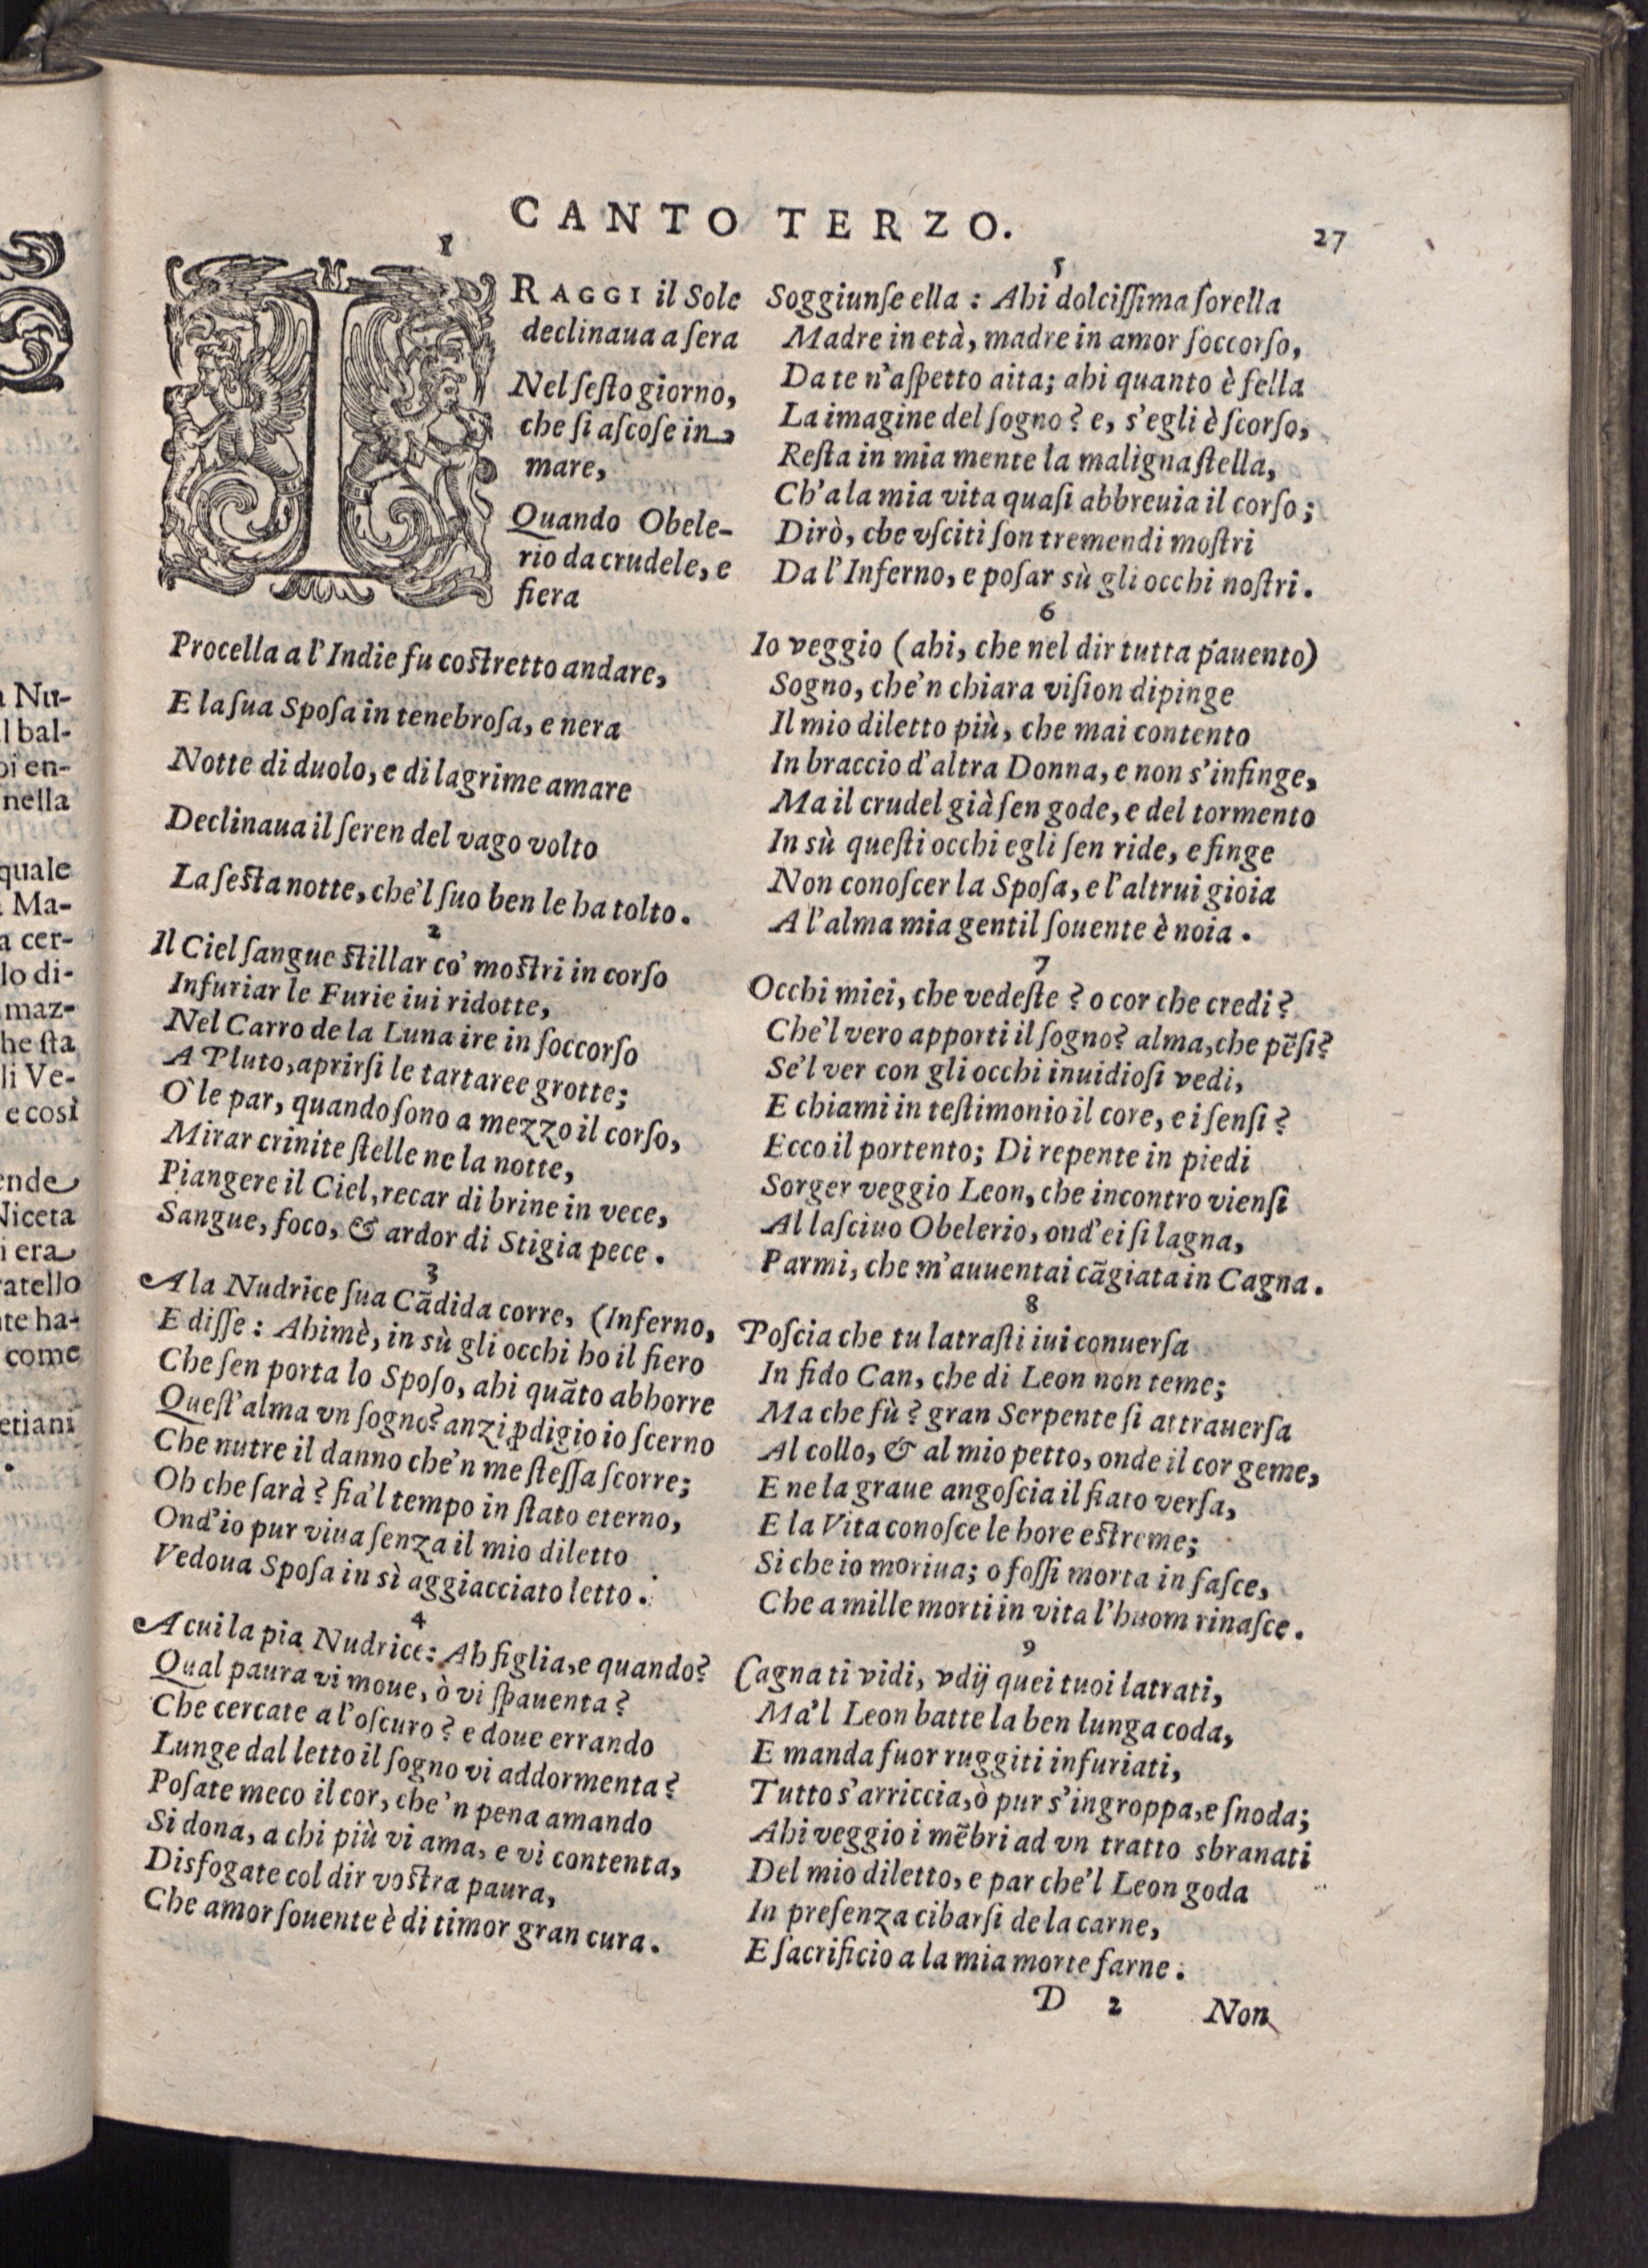 CANTO TERZO.
27
1
I RAGGI il Sole
declinaua a ſera
Nel ſeſto giorno,
che ſi aſcoſe in
mare,
Quando Obele-
rio da crudele, e
fiera
Procella a l'Indie fu coſtretto andare,
E la ſua Spoſa in tenebroſa, e nera
Notte di duolo, e di lagrime amare
Declinaua il ſeren del vago volto
La ſeſta notte, che'l ſuo ben le ha tolto.
2
Il Ciel ſangue ſtillar co' moſtri in corſo
Infuriar le Furie iui ridotte,
Nel Carro de la Luna ire in ſoccorſo
A Pluto, aprirſi le tartaree grotte;
O' le par, quando ſono a mezzo il corſo,
Mirar crinite ſtelle ne la notte,
Piangere il Ciel, recar di brine in vece,
Sangue, foco, & ardor di Stigia pece.
3
A la Nudrice ſua Cãdida corre, (Inferno,
E diſſe: Ahimè, in sù gli occhi ho il fiero
Che ſen porta lo Spoſo, ahi quãto abhorre
Queſt'alma vn ſogno? anzi ꝓdigio io ſcerno
Che nutre il danno che'n me ſteſſa ſcorre;
Oh che ſarà? fia'l tempo in ſtato eterno,
Ond'io pur viua ſenza il mio diletto
Vedoua Spoſa in sì aggiacciato letto.
4
A cui la pia Nudrice: Ah figlia, e quando?
Qual paura vi moue, ò vi ſpauenta?
Che cercate a l'oſcuro? e doue errando
Lunge dal letto il ſogno vi addormenta?
Poſate meco il cor, che'n pena amando
Si dona, a chi più vi ama, e vi contenta,
Disfogate col dir voſtra paura,
Che amor ſouente è di timor gran cura.
5
Soggiunſe ella: Ahi dolciſſima ſorella
Madre in età, madre in amor ſoccorſo,
Da te n'aſpetto aita; ahi quanto è fella
La imagine del ſogno? e, s'egli è ſcorſo,
Reſta in mia mente la maligna ſtella,
Ch'a la mia vita quaſi abbreuia il corſo;
Dirò, che vſciti ſon tremendi moſtri
Da l'Inferno, e poſar sù gli occhi noſtri.
6
Io veggio (ahi, che nel dir tutta pauento)
Sogno, che'n chiara viſion dipinge
Il mio diletto più, che mai contento
In braccio d'altra Donna, e non s'infinge,
Ma il crudel già ſen gode, e del tormento
In sù queſti occhi egli ſen ride, e finge
Non conoſcer la Spoſa, e l'altrui gioia
A l'alma mia gentil ſouente è noia.
7
Occhi miei, che vedeſte? o cor che credi?
Che'l vero apporti il ſogno? alma, che pẽſi?
Se'l ver con gli occhi inuidioſi vedi,
E chiami in teſtimonio il core, e i ſenſi?
Ecco il portento; Di repente in piedi
Sorger veggio Leon, che incontro vienſi
Al laſciuo Obelerio, ond'ei ſi lagna,
Parmi, che m'auuentai cãgiata in Cagna.
8
Poſcia che tu latraſti iui conuerſa
In fido Can, che di Leon non teme;
Ma che fù? gran Serpente ſi attrauerſa
Al collo, & al mio petto, onde il cor geme,
E ne la graue angoſcia il fiato verſa,
E la Vita conoſce le hore eſtreme;
Si che io moriua; o foſſi morta in faſce,
Che a mille morti in vita l'huom rinaſce.
9
Cagna ti vidi, vdij quei tuoi latrati,
Ma'l Leon batte la ben lunga coda,
E manda fuor ruggiti infuriati,
Tutto s'arriccia, ò pur s'ingroppa, e ſnoda;
Ahi veggio i mẽbri ad vn tratto sbranati
Del mio diletto, e par che'l Leon goda
In preſenza cibarſi de la carne,
E ſacrificio a la mia morte farne.
D 2 Non
Nu-
l bal-
oi en-
nella
quale
Ma-
a cer-
lo di-
maz-
he ſta
li Ve-
e così
ende
Niceta
i era
ratello
te ha-
come
etiani